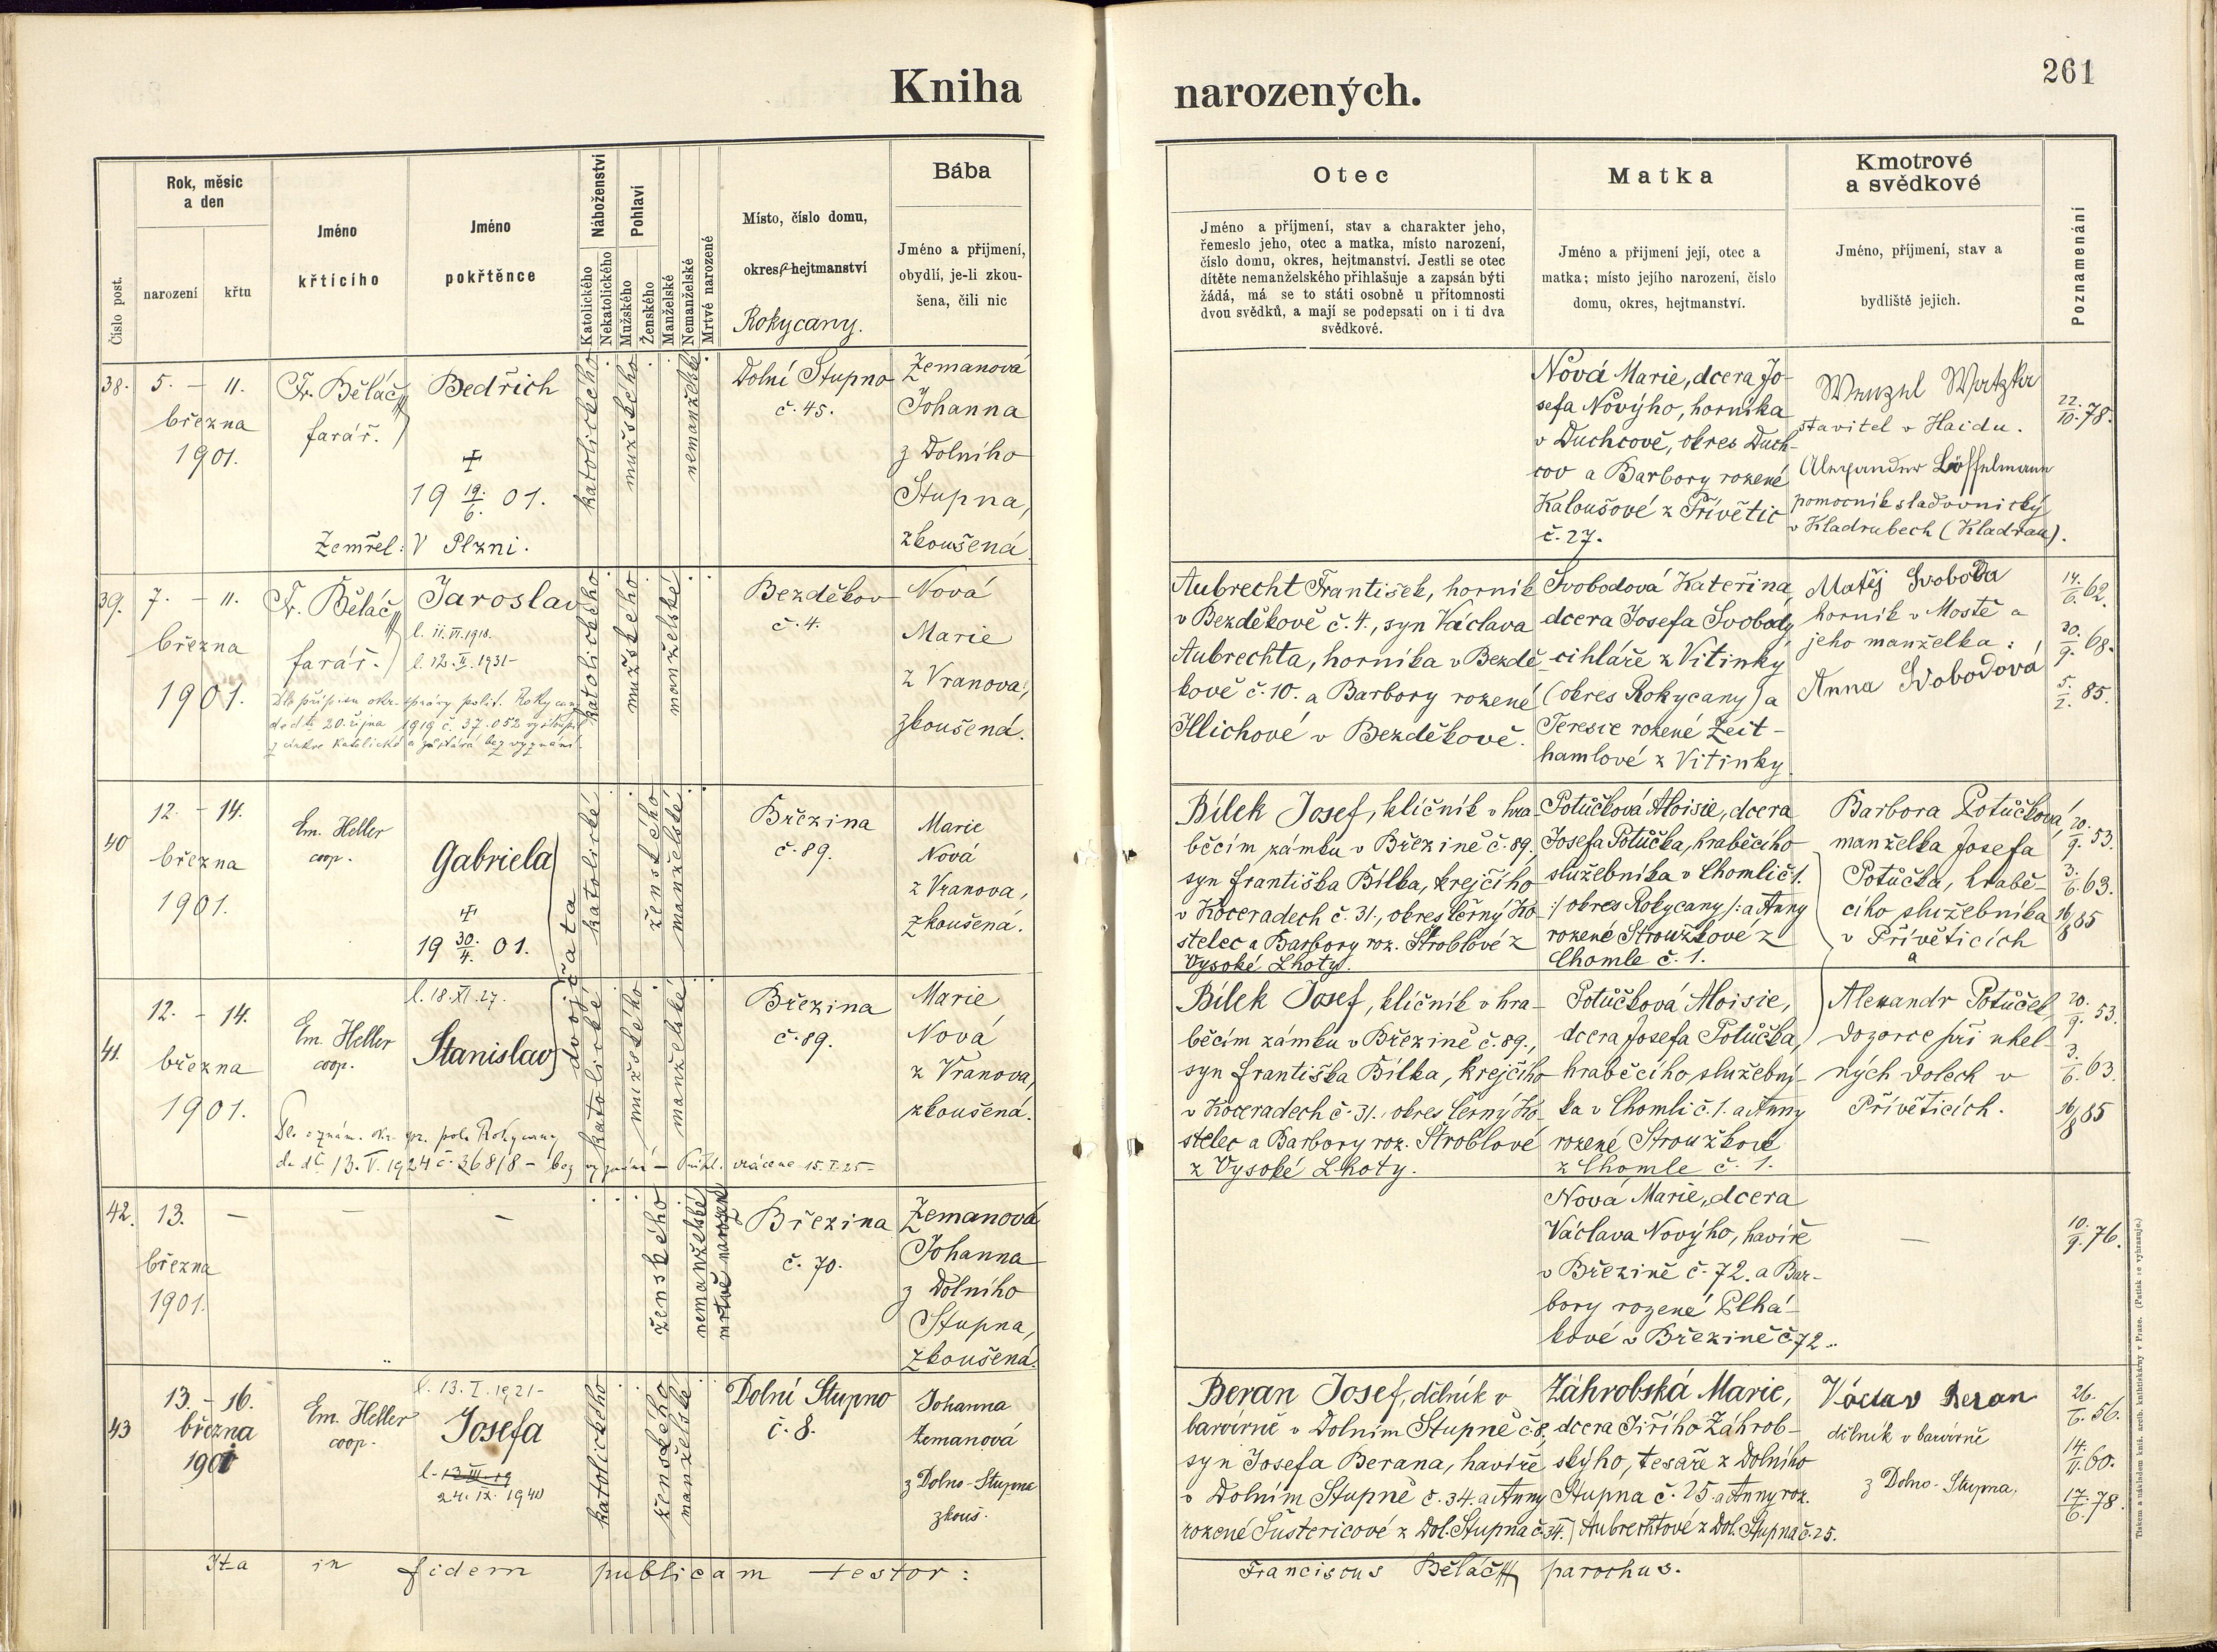 Kniha
narozených.
261
Číslo post.
Rok, měsíc
a den
narození
křtu
Jméno
křtícího
Jméno
pokřtěnce
Náboženství
Katolického
Nekatolického
Pohlaví
Mužského
Ženského
Manželské
Nemanželské
Mrtvé narozené
Místo, číslo domu,
okres, hejtmanství
Rokycany.
Bába
Jméno a příjmení,
obydlí, je-li zkou-
šena, čili nic
Otec
Jméno a příjmení, stav a charakter jeho,
řemeslo jeho, otec a matka, místo narození,
číslo domu, okres, hejtmanství. Jestli se otec
dítěte nemanželského přihlašuje a zapsán býti
žádá, má se to státi osobně u přítomnosti
dvou svědků, a mají se podepsati on i ti dva
svědkové.
Matka
Jméno a příjmení její, otec a
matka; místo jejího narození, číslo
domu, okres, hejtmanství.
Kmotrové
a svědkové
Jméno, příjmení, stav a
bydliště jejich.
Poznamenání
38.
5. – 11.
března
1901.
Fr. Běláč
farář.
Bedřich
19 19./6. 01.
Zemřel: V Plzni.
katolického
mužského
nemanželské
Dolní Stupno
č. 45.
Zemanová
Johanna
z Dolního
Stupna,
zkoušená
Nová Marie, dcera Jo-
sefa Nového, horníka
v Duchcově, okres Duch-
cov a Barbory rozené
Kaloušové z Přívětic
č. 27.
Wenzel Watzka
stavitel v Haidu.
Alexander Löffelmann
pomocník sladovnický
v Kladrubech (Kladrau).
22./10. 78.
39.
7. – 11.
března
1901.
Fr. Běláč
farář.
Jaroslav
l. 11. VI. 1918.
l. 12. II. 1931-
Dle přípisu okr. správy polit. Rokycany
ddto 20. října 1919 č. 37.052 vystoupil
z církve katolické a zůstává bez vyznání.
katolického
mužského
manželské
Bezděkov
č. 4.
Nová
Marie
z Vranova,
zkoušená.
Aubrecht František, horník
v Bezděkově č. 4., syn Václava
Aubrechta, horníka v Bezdě-
kově č. 10. a Barbory rozené
Illichové v Bezděkově.
Svobodová Kateřina,
dcera Josefa Svobody,
cihláře z Vitinky
(okres Rokycany) a
Terezie rozené Zeit-
hamlové z Vitinky
Matěj Svoboda
horník v Mostě a
jeho manželka:
Anna Svobodová
14./6. 62.
30./9. 68.
5./2. 85.
40
12. – 14.
března
1901.
Em. Heller
coop.
Gabriela
19 30./4. 01.
dvojčata
katolické
ženského
manželské
Březina
č. 89.
Marie
Nová
z Vranova,
zkoušená.
Bílek Josef, klíčník v hra-
běcím zámku v Březině č. 89.,
syn Františka Bílka, krejčího
v Koceradech č. 31., okres Černý Ko-
stelec a Barbory roz. Štroblové z
Vysoké Lhoty.
Potůčková Aloisie, dcera
Josefa Potůčka, hraběcího
služebníka v Chomli č. 1.
:/ okres Rokycany /: a Anny
rozené Stroužkové z
Chomle č. 1.
Barbora Potůčková,
manželka Josefa
Potůčka, hrabě-
cího služebníka
v Přívěticích
a
20./9. 53.
3./6. 63.
16/8 85
41.
12. – 14.
března
1901.
Em. Heller
coop.
l. 18. XI. 27.
Stanislav
Dle oznám. okr. spr. pol. Rokycany
de dto. 13. V. 1924 č. 36818 – bez vyznání – vráceno 15. I. 25-
katolické
mužského
manželské
Březina
č. 89.
Marie
Nová
z Vranova,
zkoušená.
Bílek Josef, klíčník v hra-
běcím zámku v Březině č. 89.,
syn Františka Bílka, krejčího
v Koceradech č. 31., okres Černý Ko-
stelec a Barbory roz. Štroblové
z Vysoké Lhoty.
Potůčková Aloisie,
dcera Josefa Potůčka,
hraběcího služební-
ka v Chomli č. 1. a Anny
rozené Stroužkové
z Chomle č. 1.
Alexandr Potůček,
dozorce při uhel-
ných dolech v
Přívěticích.
20./9. 53.
3./6. 63.
16/8 85
42.
13.
března
1901.
ženského
nemanželské
mrtvě narozené
Březina
č. 70.
Zemanová
Johanna
z Dolního
Stupna,
zkoušená.
Nová Marie, dcera
Václava Nového, havíře
v Březině č. 72. a Bar-
bory rozené Plhá-
kové v Březině č. 72.
10./9. 76.
43
13. – 16.
března
1901
Em. Heller
coop.
l. 13. I. 1921-
Josefa
l. 13. III. 19
24. IX. 1940
katolického
ženského
manželské
Dolní Stupno
č. 8.
Johanna
Zemanová
z Dolno-Stupna
zkouš.
Beran Josef, dělník v
barvírně v Dolním Stupně č. 8.,
syn Josefa Berana, havíře
v Dolním Stupně č. 34. a Anny
rozené Šustericové z Dol. Stupna č. 34.
Záhrobská Marie,
dcera Jiřího Záhrob-
ského, tesaře z Dolního
Stupna č. 25. a Anny roz.
Aubrechtové z Dol. Stupna č. 25.
Václav Beran
dělník v barvírně
z Dolno-Stupna.
26./6. 56.
14./11. 60.
17./6. 78.
Ita in fidem publicam testor:
Franciscus Běláč parochus.
Tiskem a nákladem kníž. arcib. knihtiskárny v Praze. (Patisk se vyhrazuje.)